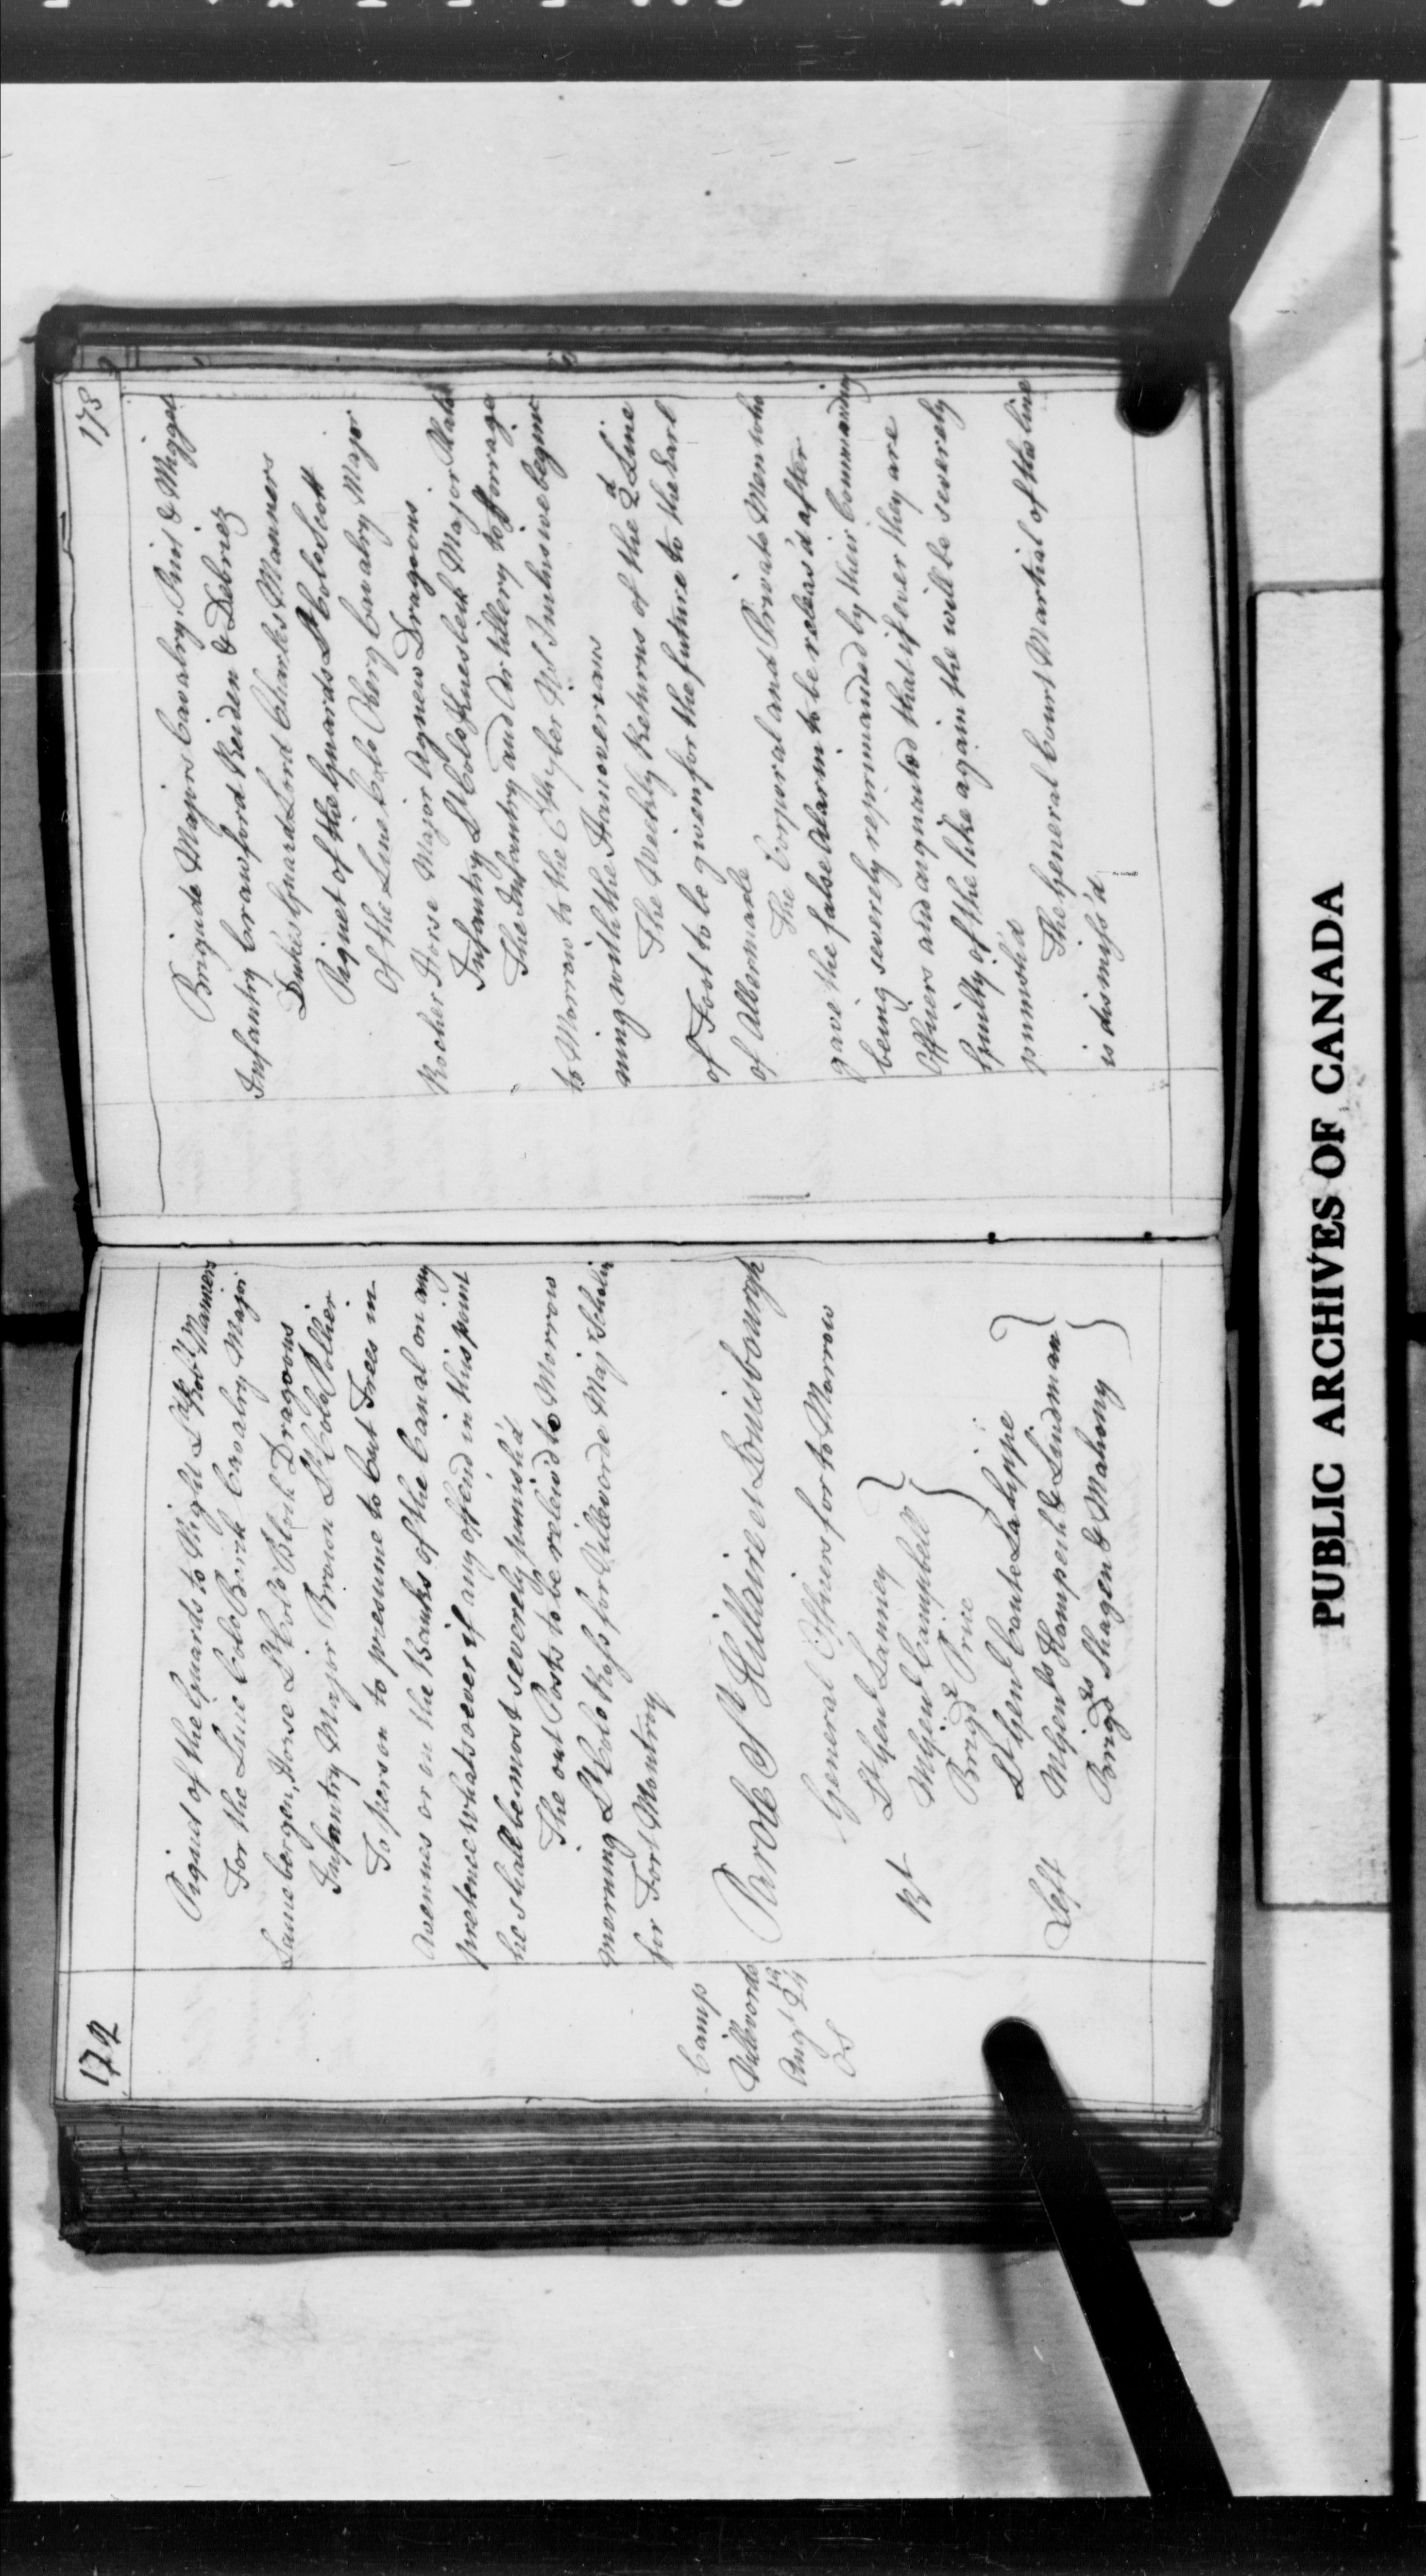 172
Piquet of the Guards to Night Lt Col Robt Manners
For the Line Colo Bork Cavalry Major
Launebergen, Horse Lt Colo Block Dragoons
Infantry Major Brown Lt Colo Pollier
No person to presume to Cut Trees in
Avenues or on the Banks of the Canal on any
pretence whatsoever if any offend in this point
he shall be most severely punish'd
The out Posts to be reliev'd to Morrow
morning Lt Colo Ross for Villevorde Majr Scholin
for Fort Montroy
Camp
Villevorde
Augt 24th
OS
Parole St Hillaire et Louisbourgh
General Officers for to Morrow
Rt
Lt Genl Sanney
M Genl Campbell
Brigd Price
Left
Lt Genl Counte La Lippe
M Genls Hampech & Lindman
Brigds Shagen & Mahony
173
Brigade Majors Cavalry, Paist & Migget
Infantry Crawford Reiden & Debriez
Dukes Guard Lord Charles Manners
Piquet of the Guards Lt Colo Scott
Of the Line Colo Oberg Cavalry Major
Rocher Horse Major Agnew Dragoons
Infantry Lt Colo Knesbeck Major Plate
The Infantry and Artillery to forrage
to Morrow to the Chessler Mil Inclusive begin-
ning with the Hanoverians
The Weekly Returns of the 2d Line
of Foot to be given for the future to the Earl
of Albermarle
The Corporal and Private Men who
gave the false Alarm to be releas'd after
being severely reprimanded by their Commanding
Officers and acquainted that if ever they are
Guilty of the like again the will be severely
punnish'd
The General Court Martial of the line
is dismiss'd
PUBLIC ARCHIVES OF CANADA